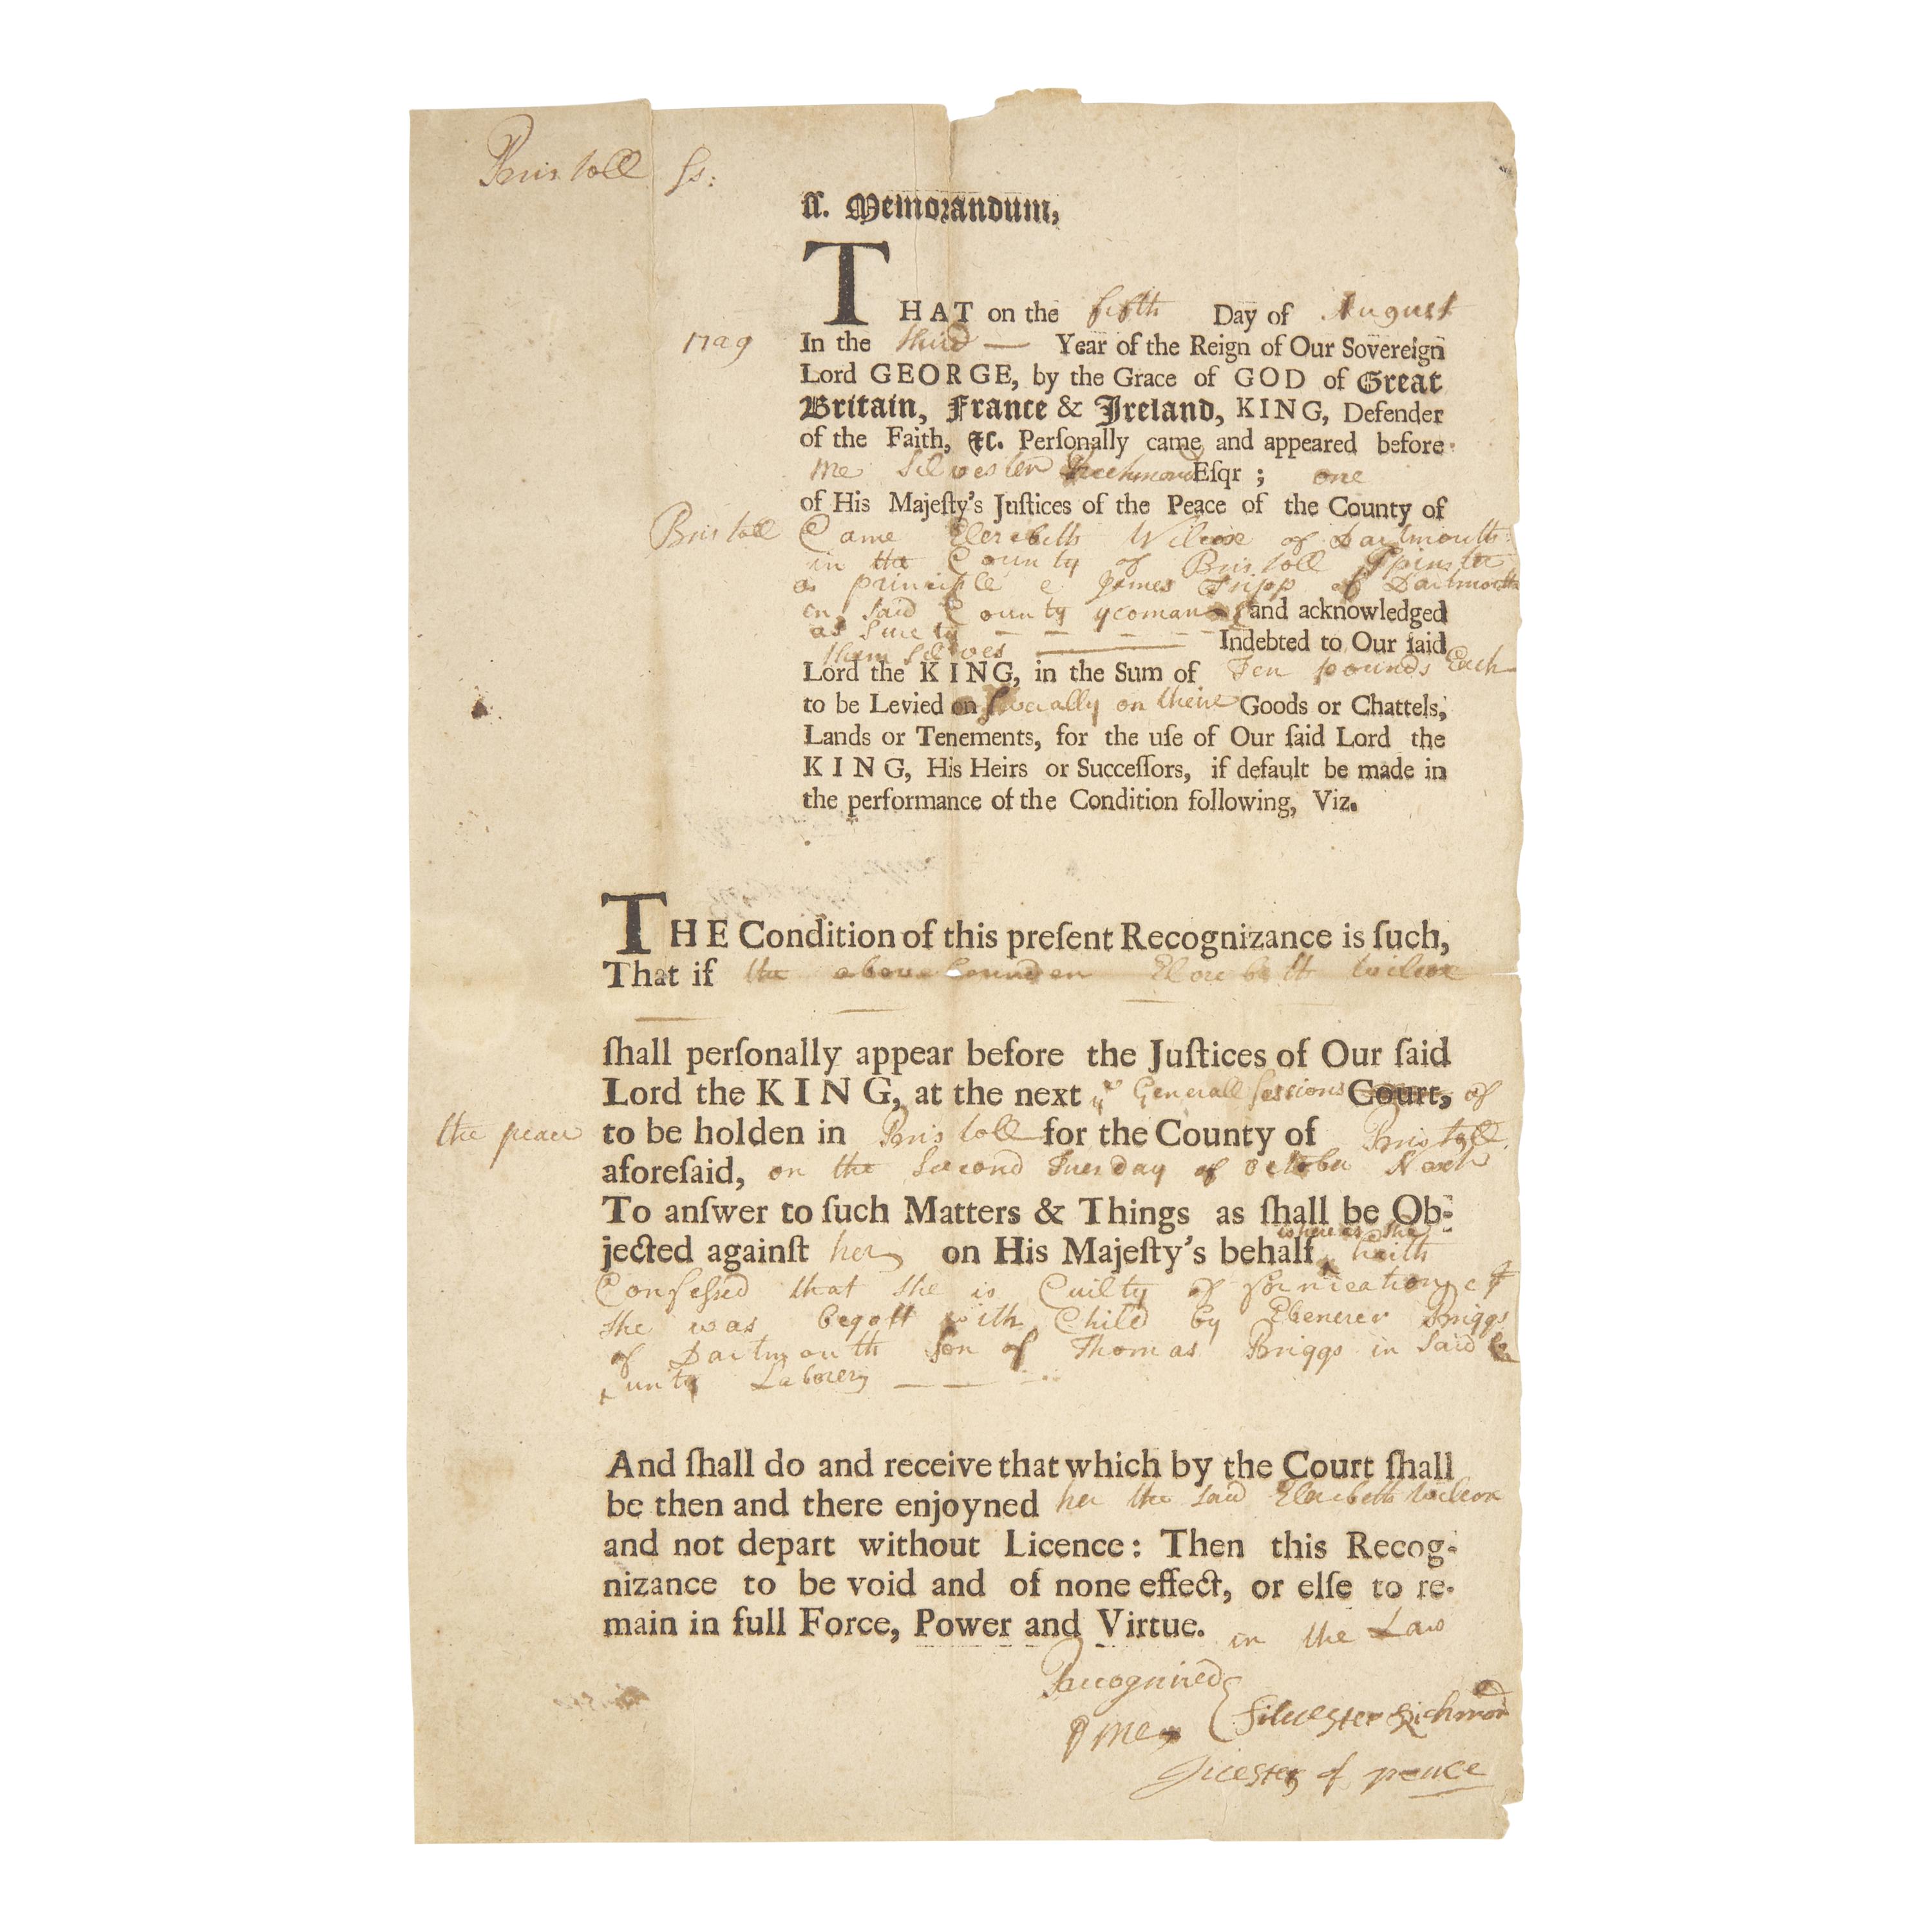 Bristoll ss:
ſſ. Memorandum,
THAT on the fifth Day of August
1729 In the third — Year of the Reign of Our Sovereign
Lord GEORGE, by the Grace of GOD of Great
Britain, France & Ireland, KING, Defender
of the Faith, &c. Perſonally came and appeared before
me Silvester Richmond Eſqr ; one
of His Majeſty's Juſtices of the Peace of the County of
Bristoll Came Elezebeth Wilcox of Dartmouth
in the County of Bristoll Spinster
as principle & James Tripp of Dartmouth
in said County yeoman and acknowledged
as surety — — — —
them selves ——— Indebted to Our ſaid
Lord the KING, in the Sum of Ten pounds Each
to be Levied on severally on theire Goods or Chattels,
Lands or Tenements, for the uſe of Our ſaid Lord the
KING, His Heirs or Succeſſors, if default be made in
the performance of the Condition following, Viz.
THE Condition of this preſent Recognizance is ſuch,
That if the above bounden Elezebeth wilcox
ſhall perſonally appear before the Juſtices of Our ſaid
Lord the KING, at the next ye Generall sessions Court, of
the peace to be holden in Bristoll for the County of Bristoll
aforeſaid, on the second Tuesday of October Next
To anſwer to ſuch Matters & Things as ſhall be Ob-
jected againſt her on His Majeſty's behalf whereas she haith
Confessed that she is Guilty of fornication & yt
she was begott with Child by Ebenezer Briggs
of Dartmouth son of Thomas Briggs in said Co
unty Laborer — — —
And ſhall do and receive that which by the Court ſhall
be then and there enjoyned her the said Elezebeth wilcox
and not depart without Licence : Then this Recog-
nizance to be void and of none effect, or elſe to re-
main in full Force, Power and Virtue. in the Law
Recognized
p me Silvester Richmond
Jucstes of peace